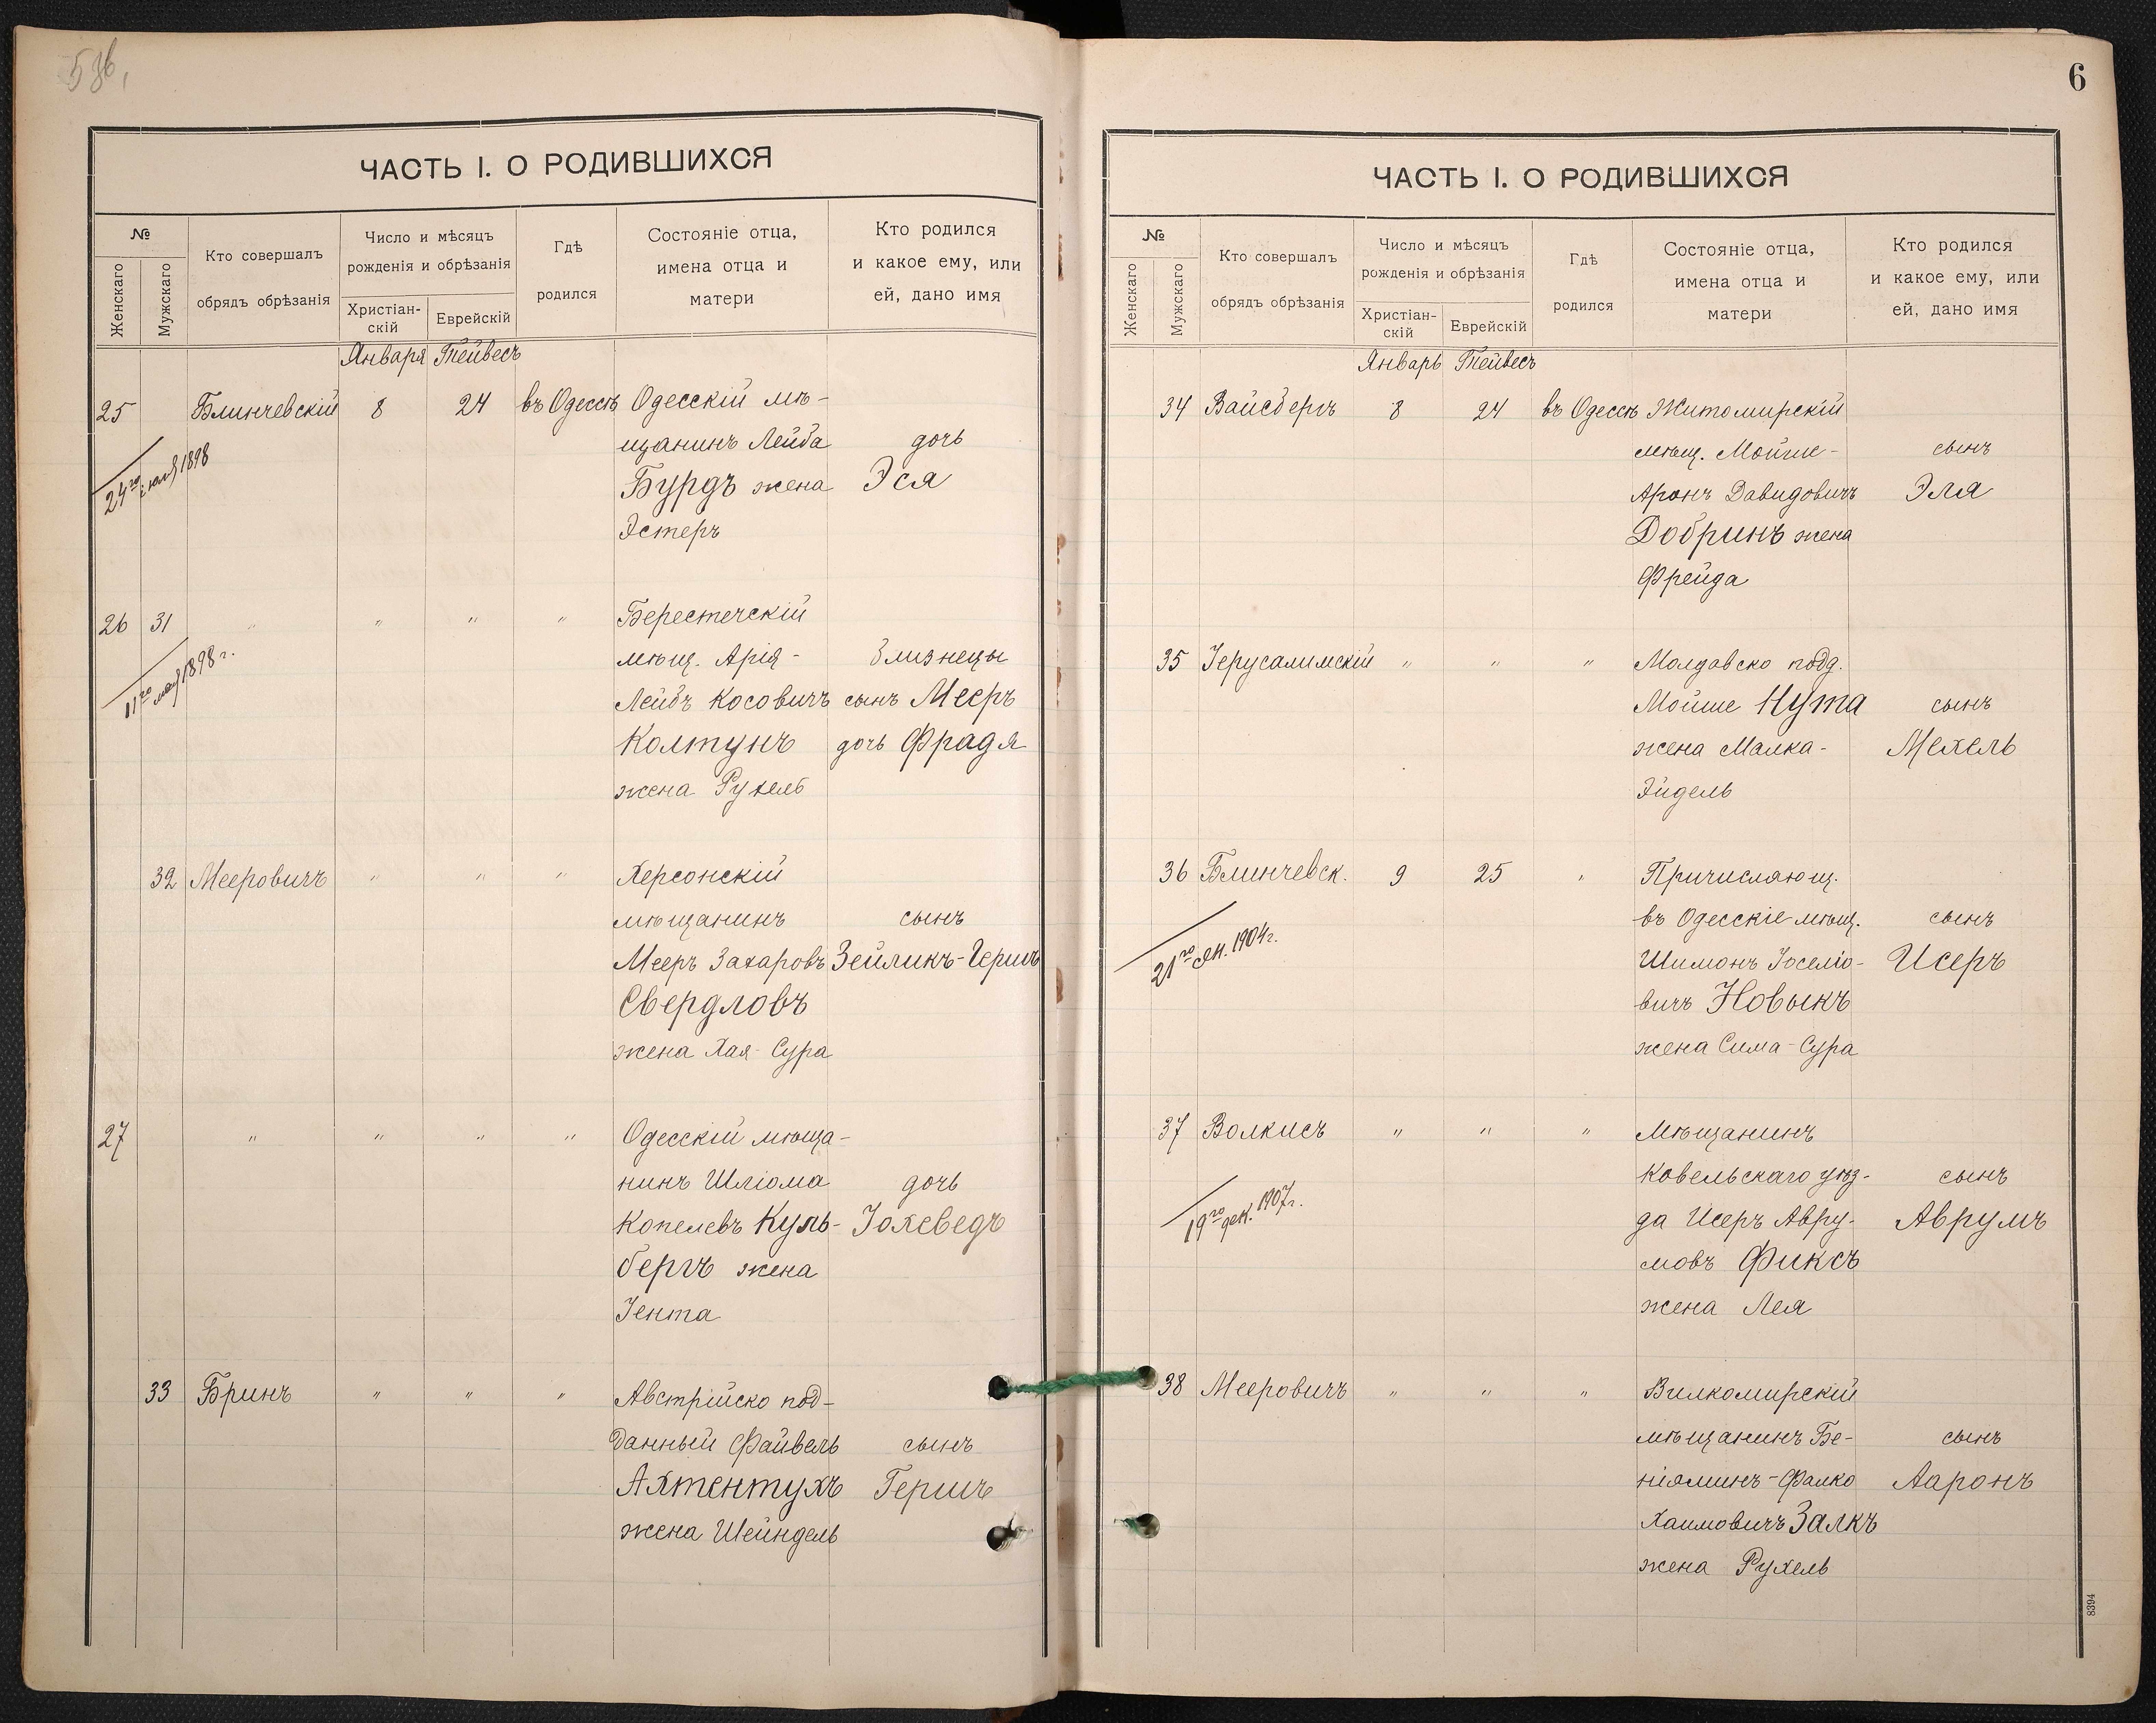 5 зв,
ЧАСТЬ I. О РОДИВШИХСЯ
№
Женскаго
Мужскаго
Кто совершалъ
обрядъ обрѣзанія
Число и мѣсяцъ
рожденія и обрѣзанія
Христіан-
скій
Еврейскій
Гдѣ
родился
Состояніе отца,
имена отца и
матери
Кто родился
и какое ему, или
ей, дано имя
Января Тейвесъ
25 Блинчевскій 8 24 въ Одессѣ Одесскій мѣ-
щанинъ Лейба дочь
24го іюля 1898
Бурдъ жена Эся
Эстеръ
26 31 " " " " Берестечскій
мѣщ. Арія- близнецы
11го мая 1898 г.
Лейбъ Косовичъ сынъ Мееръ
Колтунъ дочь Фрадя
жена Рухель
32 Мееровичъ " " " Херсонскій
мѣщанинъ сынъ
Мееръ Захаровъ Зейликъ-Гершъ
Свердловъ
жена Хая-Сура
27 " " " " Одесскій мѣща-
нинъ Шліома дочь
Копелевъ Куль- Іохеведъ
бергъ жена
Іента
33 Бринъ " " " Австрійско под-
данный Файвель сынъ
Ахтентухъ Гершъ
жена Шейндель
6
ЧАСТЬ I. О РОДИВШИХСЯ
№
Женскаго
Мужскаго
Кто совершалъ
обрядъ обрѣзанія
Число и мѣсяцъ
рожденія и обрѣзанія
Христіан-
скій
Еврейскій
Гдѣ
родился
Состояніе отца,
имена отца и
матери
Кто родился
и какое ему, или
ей, дано имя
Январь Тейвесъ
34 Вайсбергъ 8 24 въ Одессѣ Житомирскій
мѣщ. Мойше- сынъ
Аронъ Давидовичъ Эля
Добринъ жена
Фрейда
35 Іерусалимскій " " " Молдавско подд.
Мойше Нута сынъ
жена Малка- Мехель
Эйдель
36 Блинчевск. 9 25 " Причисляющ.
въ Одесскіе мѣщ. сынъ
21го ян. 1904г.
Шимонъ Іоселіо- Исеръ
вичъ Новыкъ
жена Сима-Сура
37 Волкисъ " " " Мѣщанинъ
Ковельскаго уѣз- сынъ
19го дек. 1907г.
да Исеръ Авру- Аврумъ
мовъ Фиксъ
жена Лея
38 Мееровичъ " " " Вилкомирскій
мѣщанинъ Бе- сынъ
ніяминъ-Фалко Ааронъ
Хаимовичъ Залкъ
жена Рухель
8394